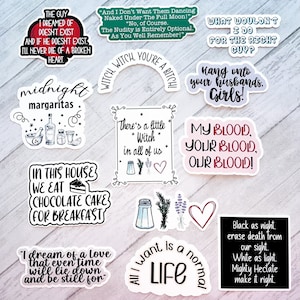 THE GUY
I DREAMED OF
DOESN'T EXIST
AND IF HE DOESN'T EXIST,
I'LL NEVER DIE OF A BROKEN
HEART.
"And I Don't Want Them Dancing
Naked Under The Full Moon!"
"No, Of Course.
The Nudity is Entirely Optional,
As You Well Remember"
WHAT WOULDN'T
I DO
FOR THE RIGHT
GUY?
WITCH, WITCH, YOU'RE A BITCH!
Hang onto
your husbands,
Girls!
midnight
margaritas
There's a little
Witch
in all of us
MY BLOOD,
YOUR BLOOD,
OUR BLOOD!
IN THIS HOUSE
WE EAT
CHOCOLATE CAKE
FOR BREAKFAST
I dream of a love
that even time
will lie down
and be still for
All I want is a normal
LIFE
Black as night,
erase death from
our sight.
White as light,
Mighty Hectate
make it right.